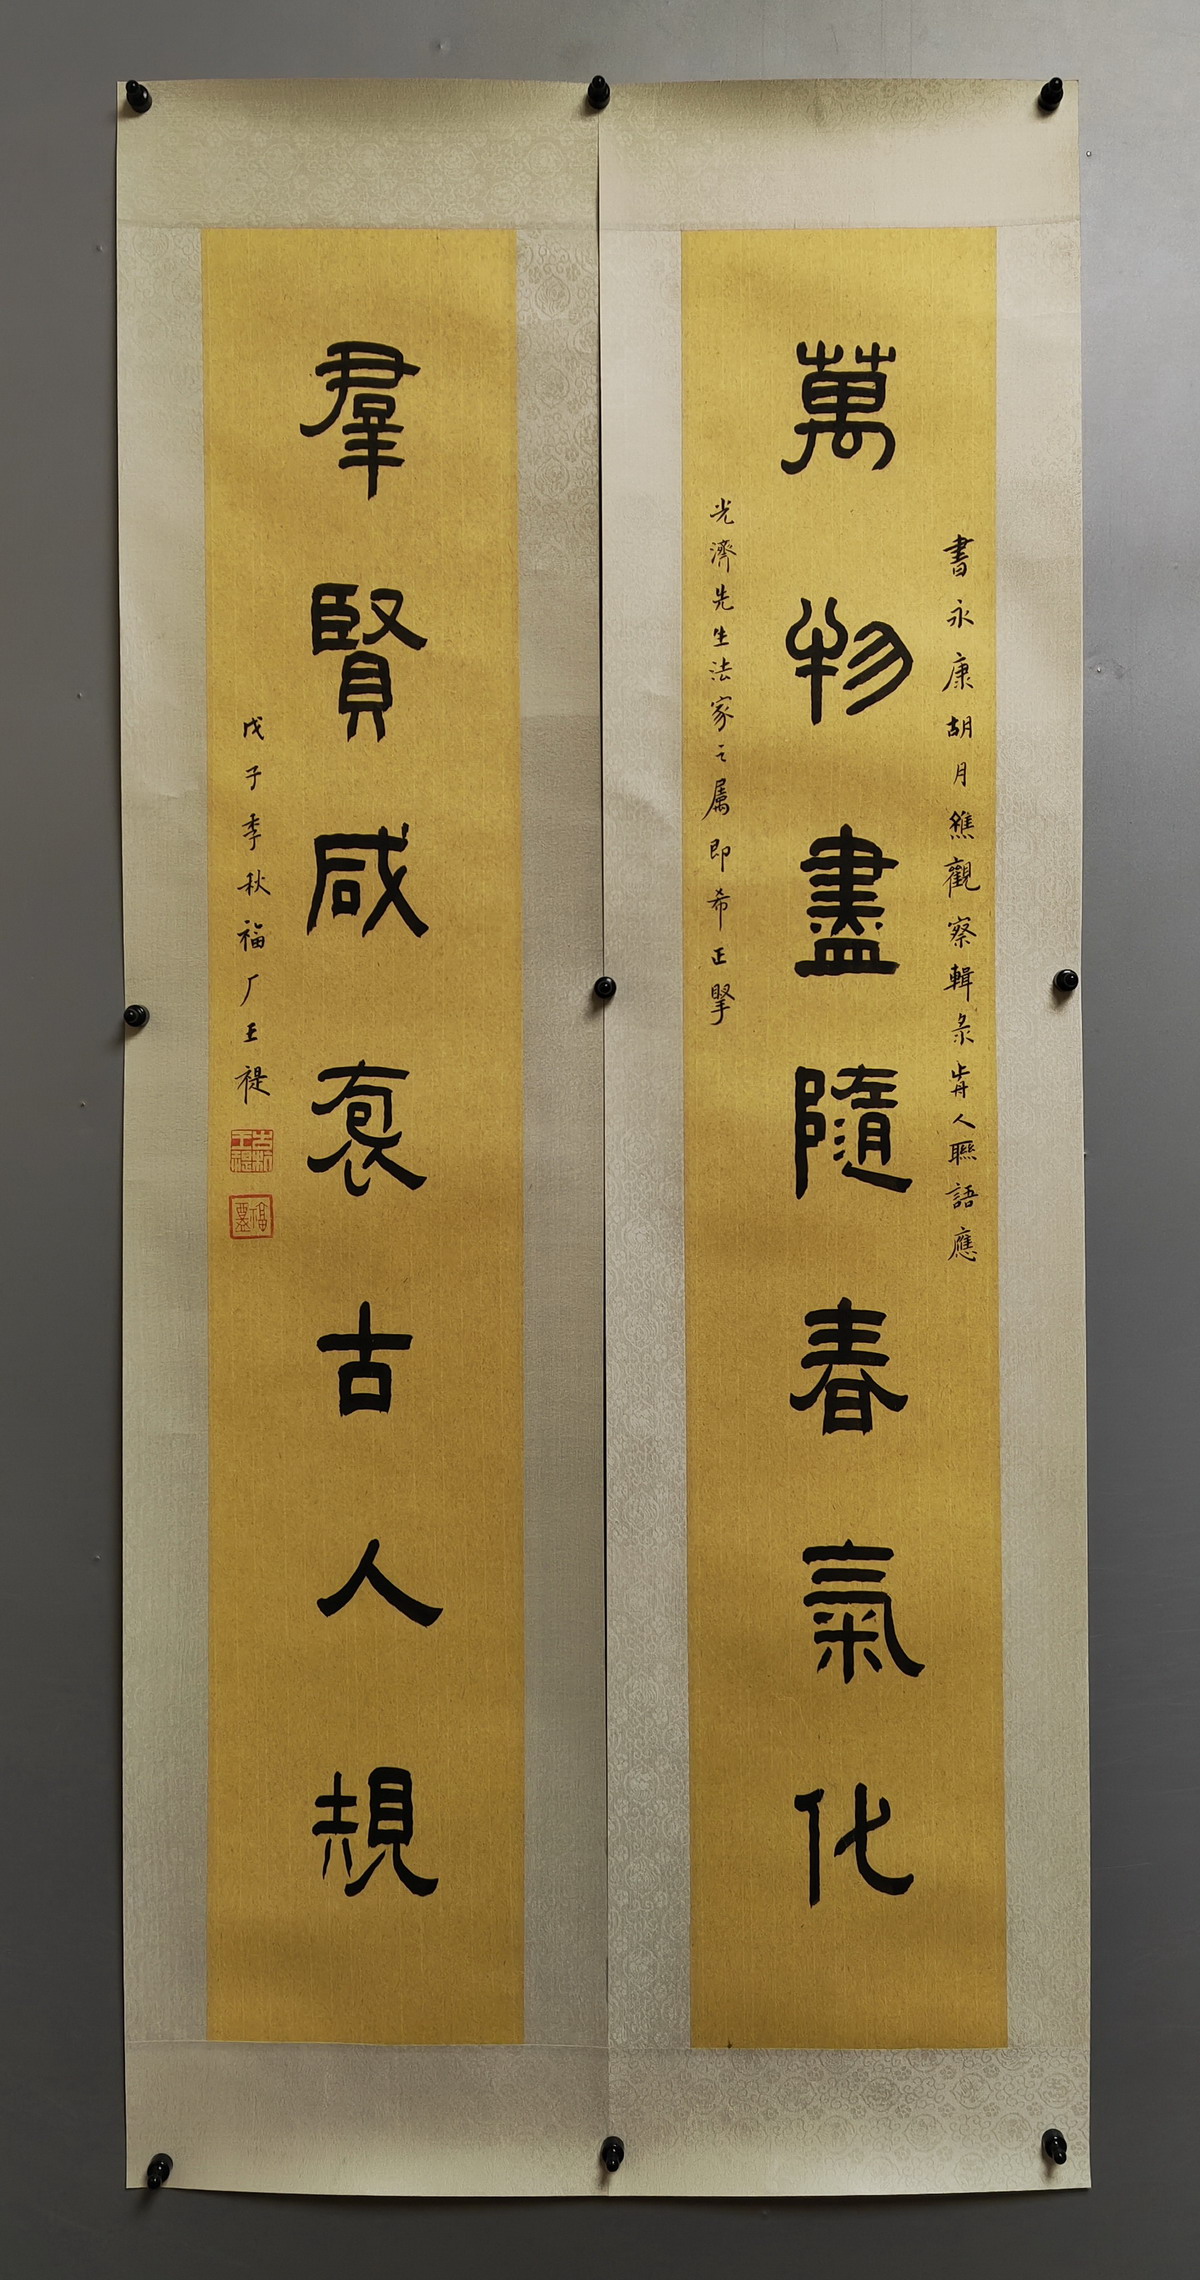 萬物盡隨春氣化
書永康胡月樵觀察輯录歬人聯語應
光濟先生法家之属即希正掔
羣賢咸袌古人規
戊子季秋福厂王禔
古杭王禔
福盦